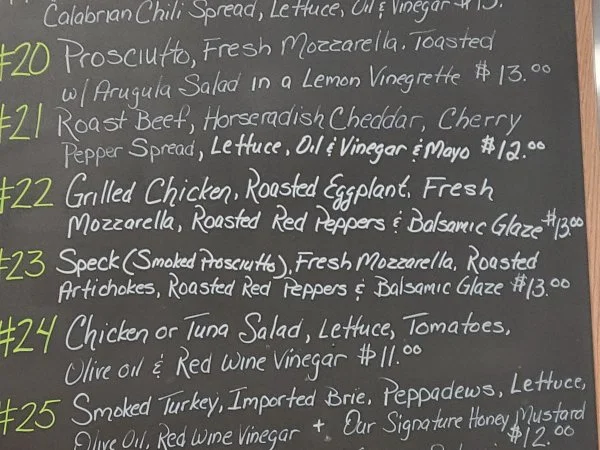 Calabrian Chili Spread, Lettuce, Oil & Vinegar $13.
#20 Prosciutto, Fresh Mozzarella. Toasted
w/ Arugula Salad in a Lemon Vinegrette $13.00
#21 Roast Beef, Horseradish Cheddar, Cherry
Pepper Spread, Lettuce, Oil & Vinegar & Mayo $12.00
#22 Grilled Chicken, Roasted Eggplant, Fresh
Mozzarella, Roasted Red Peppers & Balsamic Glaze $13.00
#23 Speck (Smoked Prosciutto), Fresh Mozzarella, Roasted
Artichokes, Roasted Red Peppers & Balsamic Glaze $13.00
#24 Chicken or Tuna Salad, Lettuce, Tomatoes,
Olive oil & Red Wine Vinegar $11.00
#25 Smoked Turkey, Imported Brie, Peppadews, Lettuce,
Olive Oil, Red Wine Vinegar + Our Signature Honey Mustard
$12.00